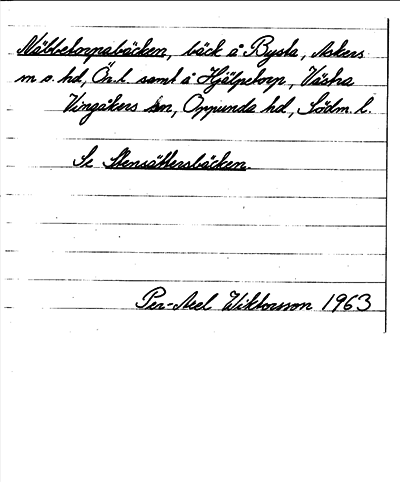 Näbbetorpabäcken, bäck å Bysta, Askers
m o. hd, Ör. l. samt å Hjälpetorp, Västra
Vingåkers sn, Oppunda hd, Södm. l.
Se Stensättersbäcken.
Per-Axel Wiktorsson 1963